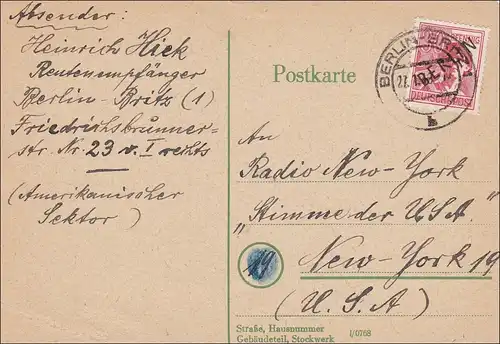 Absender:
Heinrich Hiek
Rentenempfänger
Berlin-Britz (1)
Friedrichsbrunner-
str. Nr. 23 v. I rechts
(Amerikanischer
Sektor)
Postkarte
PFENNIG
DEUTSCHE POST
BERLIN-BRITZ 1
b
An
Radio New-York
"Stimme der USA"
New-York 19
(U.S.A)
19
Straße, Hausnummer
Gebäudeteil, Stockwerk
1/0768